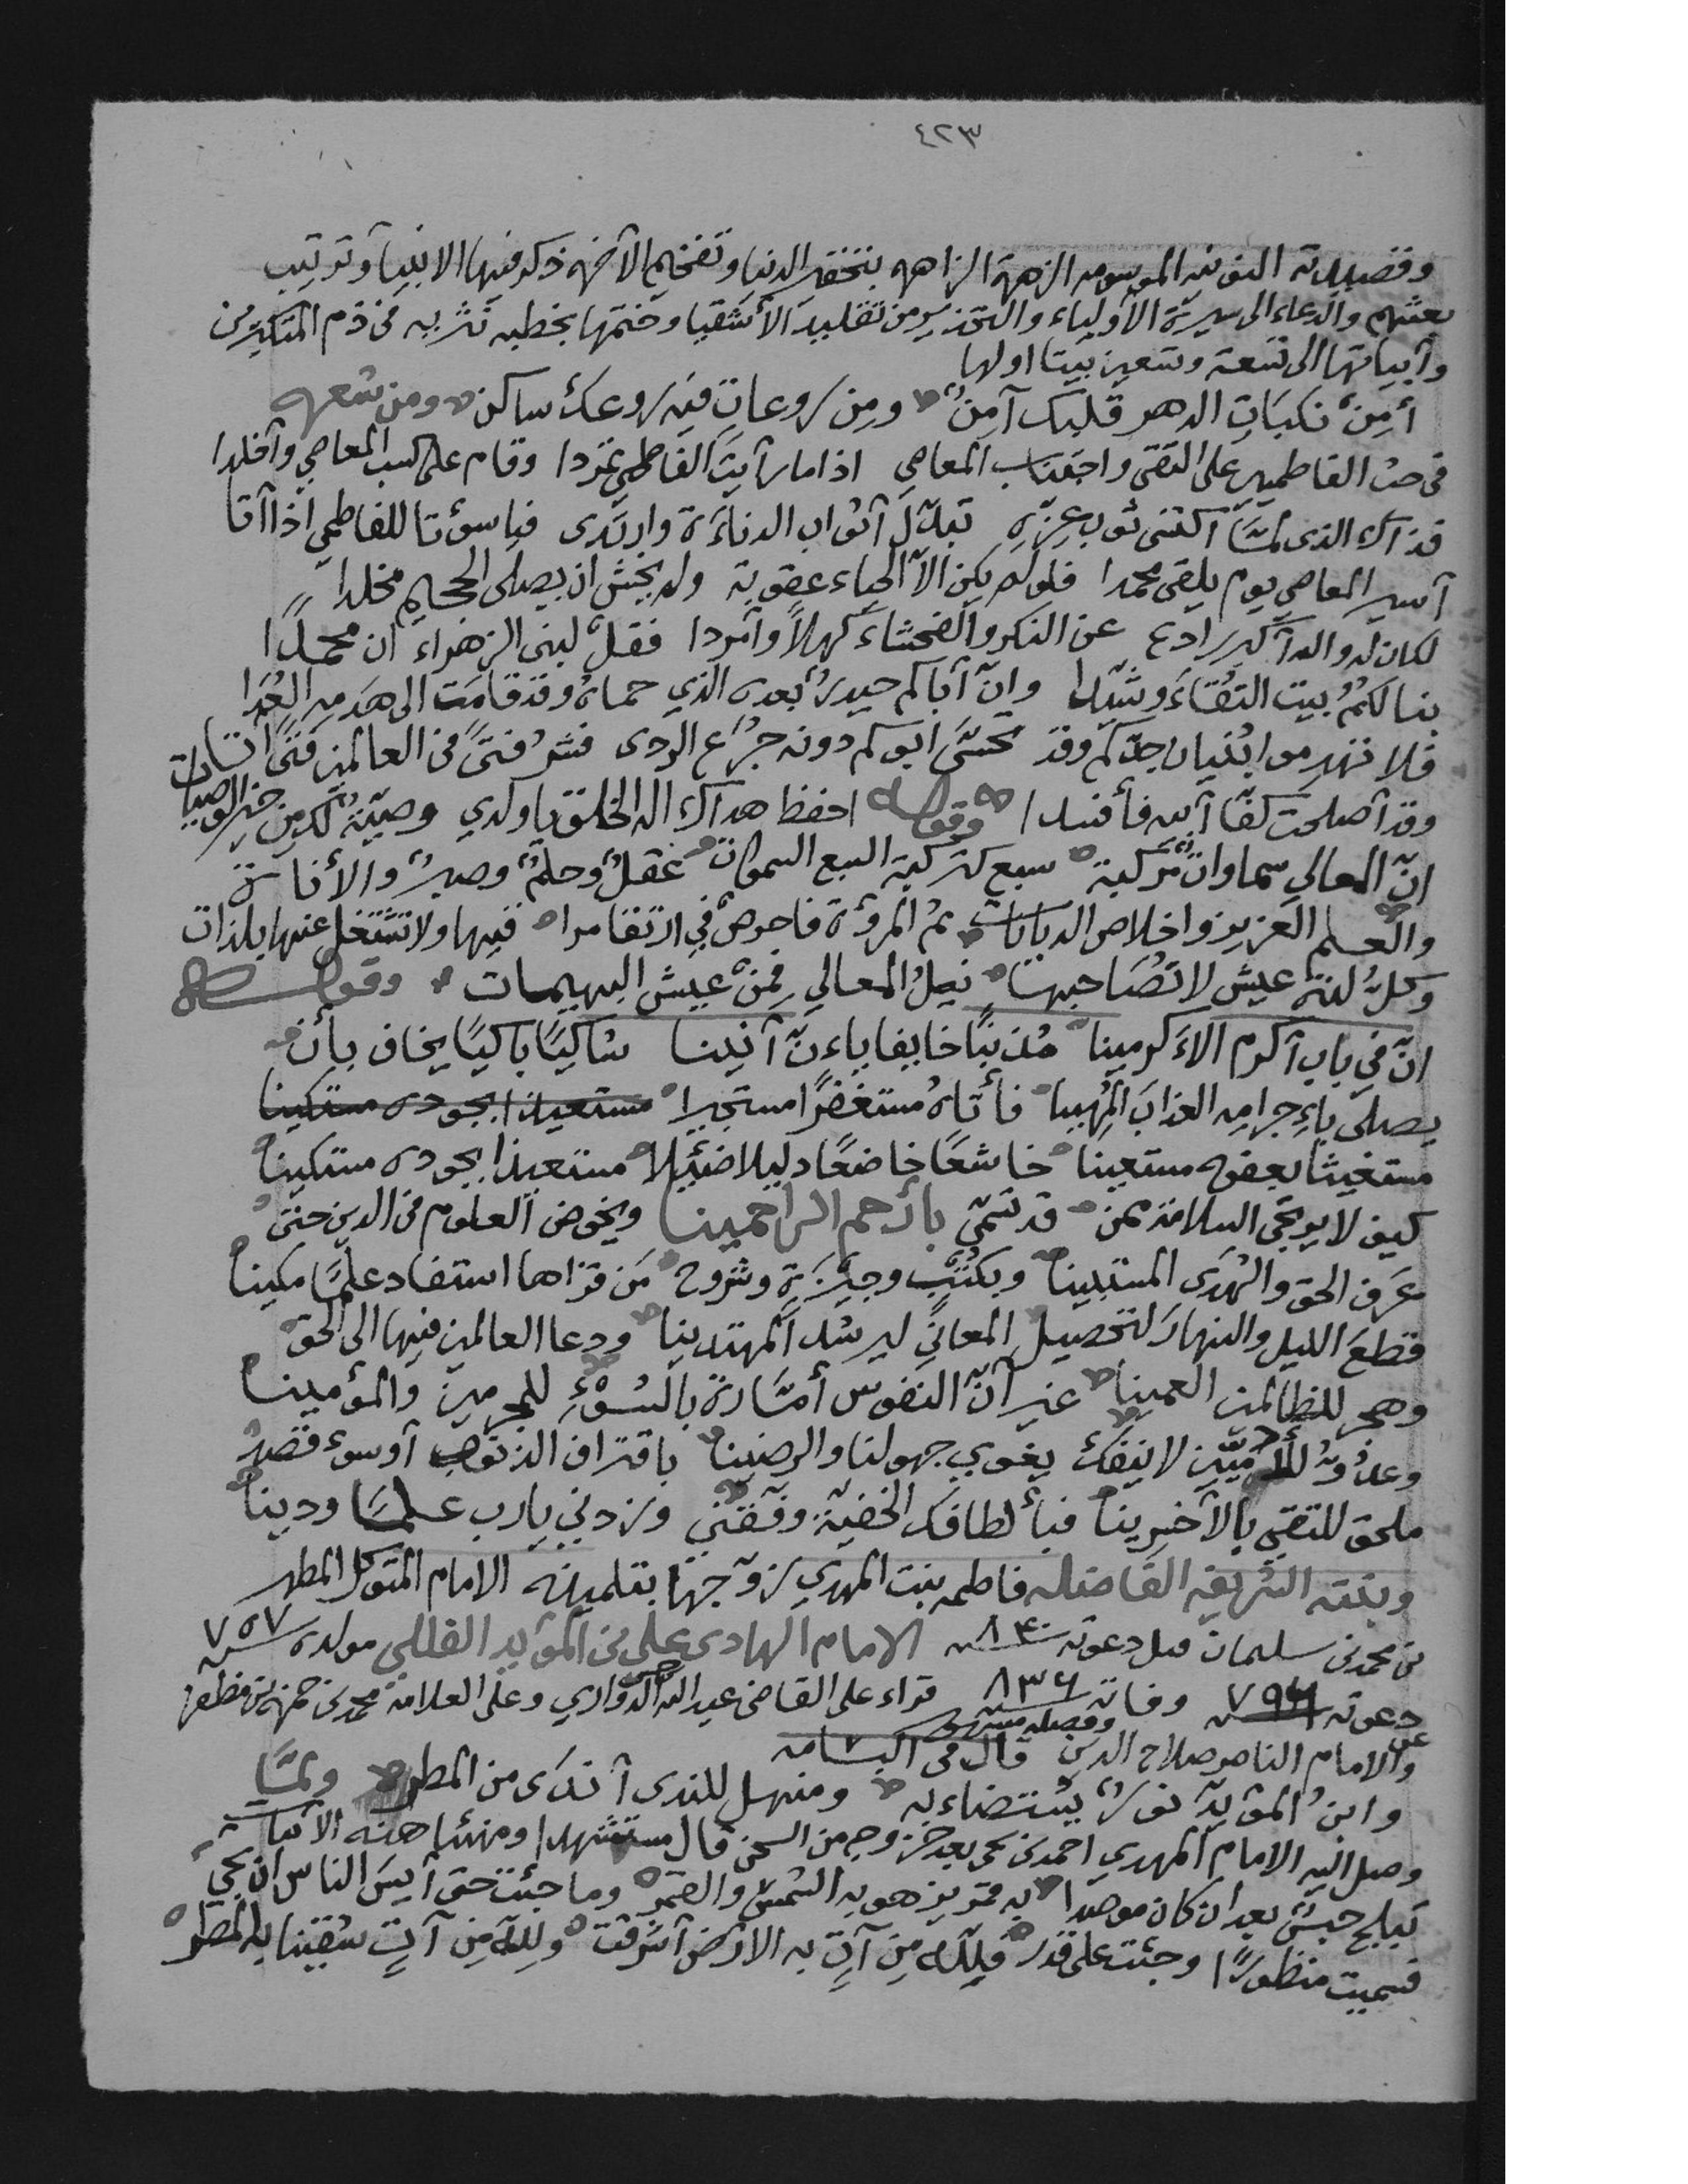 ٤٢٣
وقصيدته النونيه الموسومه الزهرة الزاهره بتحقير الدنيا وتفخيم الآخره ذكر فيها الانبيآ وترتيب
بعثهم والدعاء الى سيرة الأولياء والتحذير من تقليد الأشقيا وختمها بخطبه نثريه في ذم المتكبرين
وآبياتها الى تسعة وتسعين بيتا اولها
أمِنْ نكبَاتِ الدهر قلبك آمِنٌ ومِن روعاتٍ فيه روعك ساكن ومن شعره
في حث الفاطميين على التقى واجتناب المعاصي اذا ما رآيتَ الفاطمي تمردا وقام على كسب المعاصي وآخلدا
فذاك الذي لمّا اكتسى ثوب عِزّهِ تبدّل آثواب الدناءَة وارتدى فيا سوءتا للفاطمي اذا آتا
آسير المعاصي يوم يلقى محمدا فلو لم يكن الاّ الحياء عقوبة ولم يخش ان يصلى الجحيم مخلدا
لكان له والله آكبر رادع عن النكر والفحشاء كهلاً وآمردا فقلْ لبنى الزهراء ان محمدًا
بنا لكمُ بيت التقاءَ وشيّدا وانّ آباكم حيدرٌ بعده الذي حماهُ وقد قامت الى هدمه العُدَا
فلا تهدموا بُنيان جدّكم وقد تحسَّى ابوكم دونه جرَع الردى فشرُ فتىً في العالمين فتىً اتا
وقد آصلحت كفّا آبيه فأفسدا وقوله احفظ هداك اله الخلق يا ولدي وصيّةً لك من خير الوصيات
انّ المعالي سماواتٌ مركبة سبع كتركيبة السبع السموات عقلٌ وحلمٌ وصبرٌ والأناة
والعلم العزيز واخلاص الديانات ثم المرؤة فاحرصْ في ارتقا فيها ولا تشتغل عنها بلذات
وكلُّ لذة عيش لا تُصَاحبها نيلُ المعالي فمن عيش البهيمات وقوله
انّ في باب آكرم الاَكرمينا مُذنبًا خايفا باكيًا يخاف بأن
يصلى بإجرامه العذابَ المُهينا فأتاهُ مستغفرًا مستجيرا مستعيذا بجوده مستكينا
مستغيثا بعفوه مستعينا خاشعًا خاضعًا دليلا ضئيلا مستعيذا بجوده مستكينا
كيف لا يرتجى السلامة ممن قد تسَمّى بأرحم الراحمينا ويخوض العلوم في الدين حتى
عرَف الحق والهُدَى المستبينا وبكتْبٍ وجيزةٍ وشروح مَن قراها استفاد علمًا مكينا
قطعَ الليل والنهارَ لتحصيل المعاني ليرشد المهتدينا ودعا العالمين فيها الى الحق
وهجر للظالمين العمينا غير آنّ النفوس أمَّارة بالسُوْءِ للمجرمين والمؤمنينا
وعدُوٌ للأدميّين لا ينفك يغوي جهولنا والرصينا باقتراف الذنوب آوسوء قصد
ملحق للتقي بالآخرينا فبألطافك الخفيّة وفّقني وزدني يارب علمًا ودينا
وبنته الشريفه الفاضله فاطمه بنت المهدي زوّجها بتلميذه الامام المتوكل المطهر
بن محمد بن سليمان قبل دعوته ٨٤٠ سنه الامام الهادى على بن المؤيد الفللي مولده ٧٥٧
دعوته ٧٩٦ سنه وفاته ٨٣٦ سنه قراء على القاضي عبدالله الدواري وعلى العلامة محمد بن حمزه بن مظفر
والامام الناصر صلاح الدين قال في البسامه
وابنُ المؤيد نورٌ يستضاء به ومنهل للندى آندَى من المطر ولمّا
وصل اليه الامام المهدي احمد بن يحى بعد خروجه من السجن قال مستشهدا ومنشا هذه الآبيات
تبلج حبسٌ بعد ان كان موصدا به قمر يزهو به الشمس والقمر وما جئت حتى آيسَ الناس ان تجي
فسميت منظورًا وجئت على قدر فللّه مِن آتٍ به الارض آشرقت ولله مِن آتٍ سُقينا به المطر